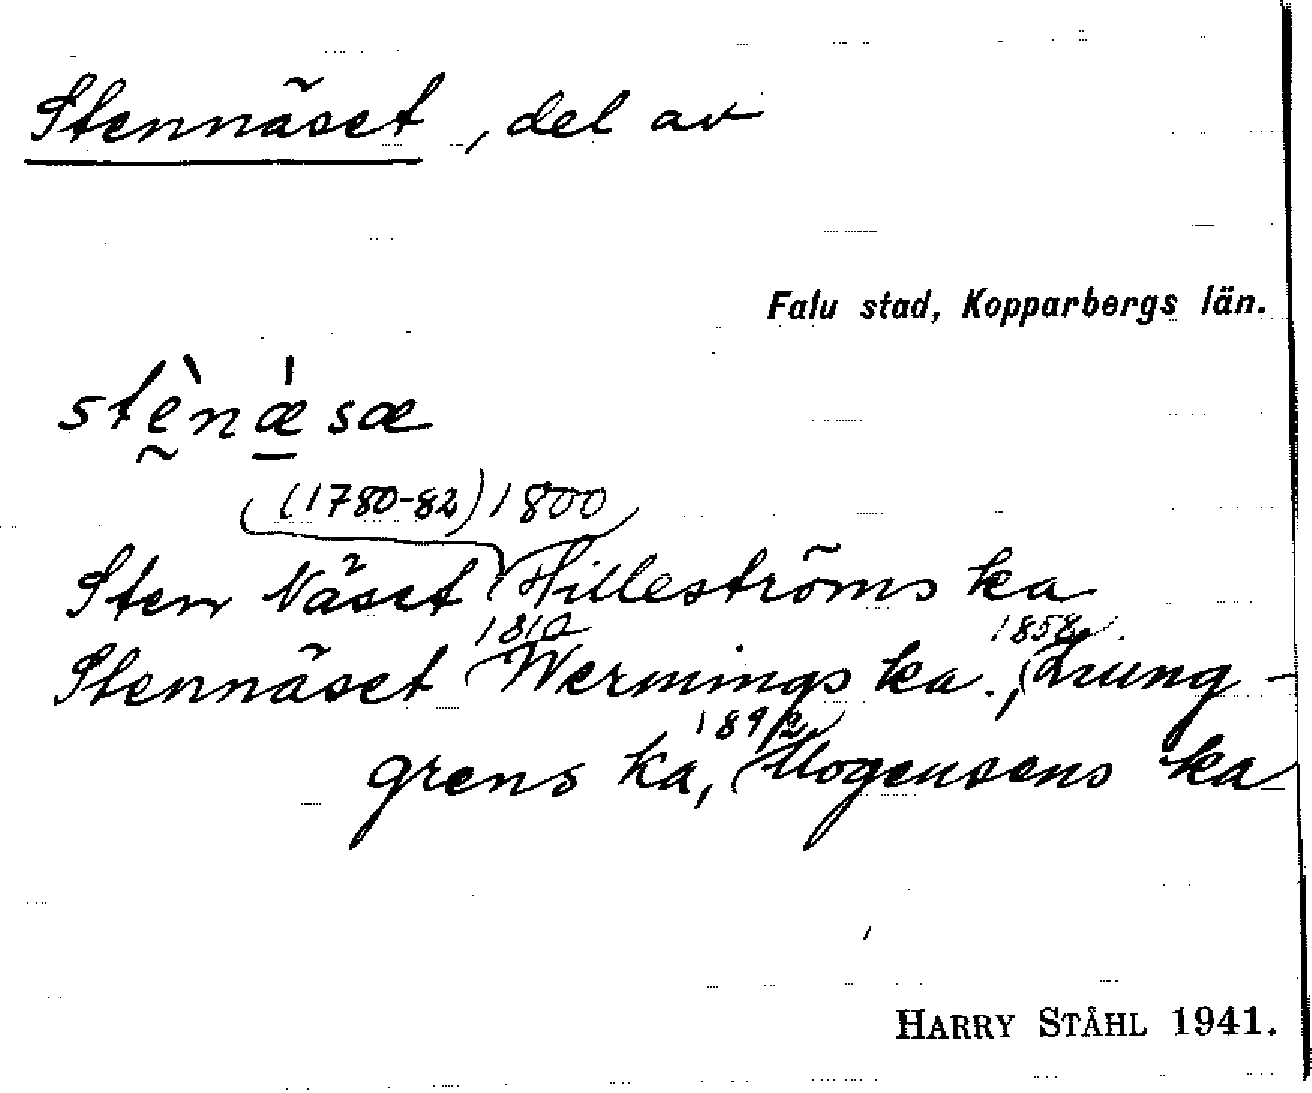 Stennäset, del av
Falu stad, Kopparbergs län.
stènæ̍sæ
(1780-82) 1800
Sten Näset Hilleströms ka
1810 1858
Stennäset Wernings ka., Liung-
1892
grens ka, Mogensens ka
HARRY STÅHL 1941.